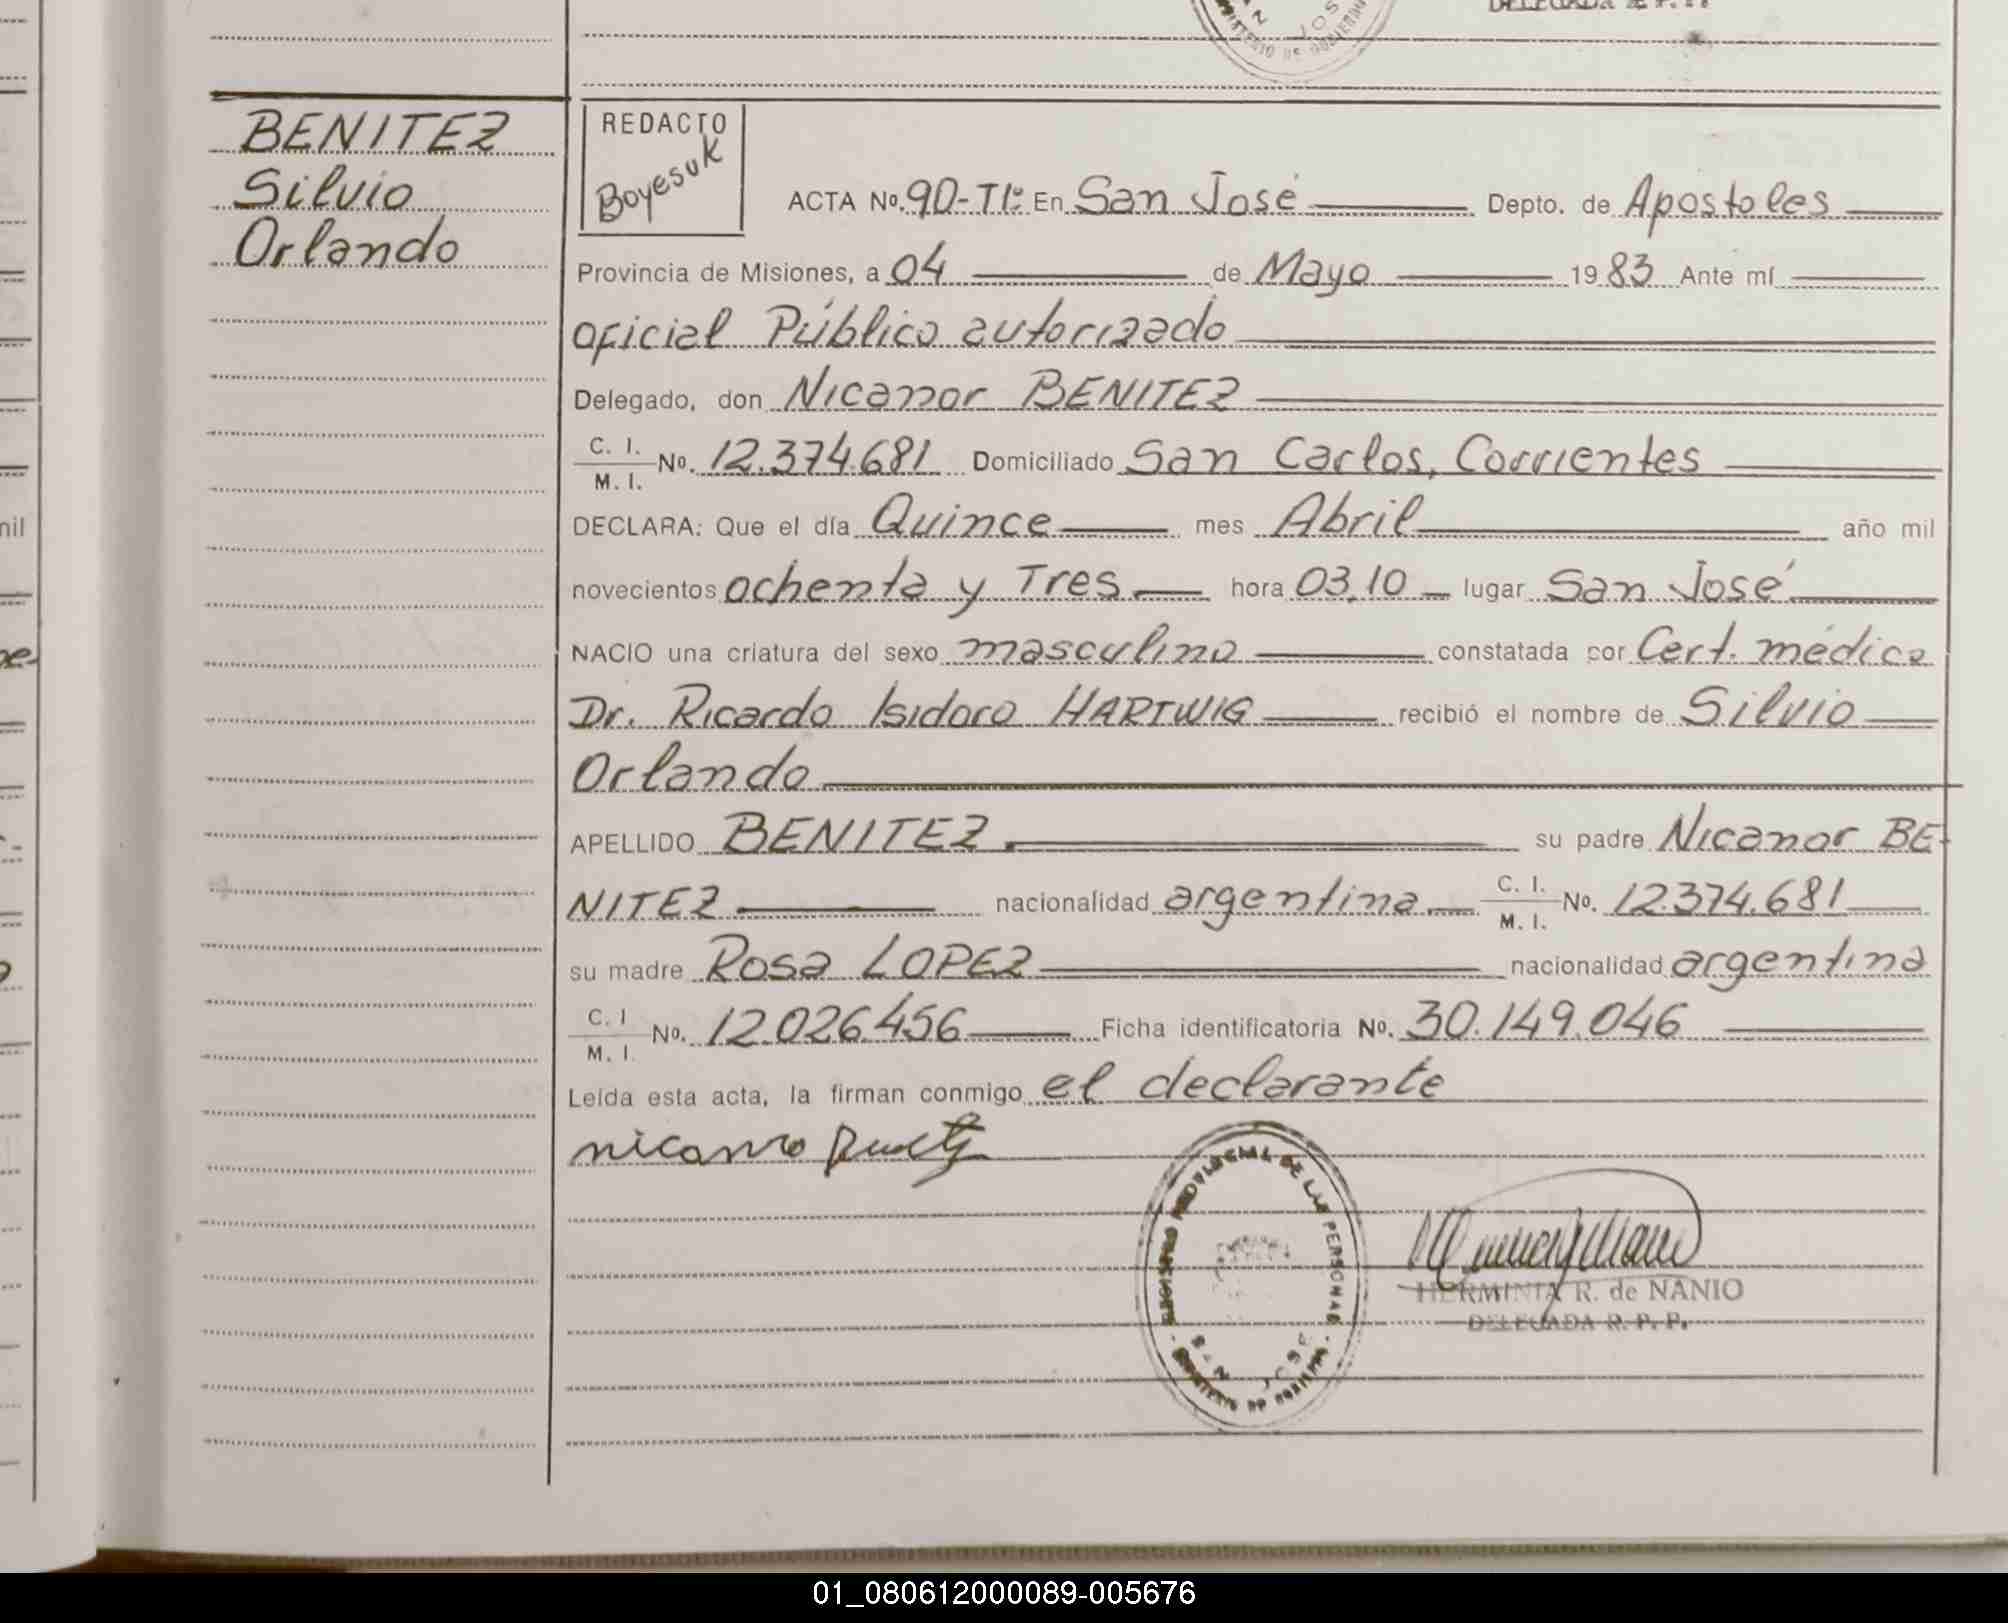 DELEGADA R. P. P.
SAN JOSE
MINISTERIO DE GOBIERNO
BENITEZ
Silvio
Orlando
REDACTO
Boyesuk
ACTA No. 90-TIº En San José Depto. de Apostoles
Provincia de Misiones, a 04 de Mayo 1983 Ante mí
oficial Público autorizado
Delegado, don Nicanor BENITEZ
C. I. / M. I. No. 12.374.681 Domiciliado San Carlos, Corrientes
DECLARA: Que el día Quince mes Abril año mil
novecientos ochenta y Tres hora 03,10 lugar San José
NACIO una criatura del sexo masculino constatada por Cert. médico
Dr. Ricardo Isidoro HARTWIG recibió el nombre de Silvio
Orlando
APELLIDO BENITEZ su padre Nicanor BE-
NITEZ nacionalidad argentina C. I. / M. I. No. 12.374.681
su madre Rosa LOPEZ nacionalidad argentina
C. I / M. I. No. 12.026.456 Ficha identificatoria No. 30.149.046
Leída esta acta, la firman conmigo el declarante
REGISTRO PROVINCIAL DE LAS PERSONAS
SAN JOSE
MINISTERIO DE GOBIERNO
HERMINIA R. de NANIO
DELEGADA R. P. P.
01_080612000089-005676